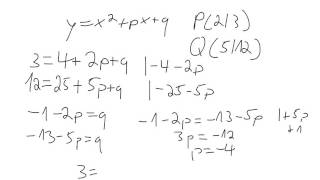 y=x²+px+q P(2|3)
Q(5|12)
3=4+2p+q |-4-2p
12=25+5p+q |-25-5p
-1-2p=q
-13-5p=q
-1-2p=-13-5p |+5p
+1
3p=-12
p=-4
3=